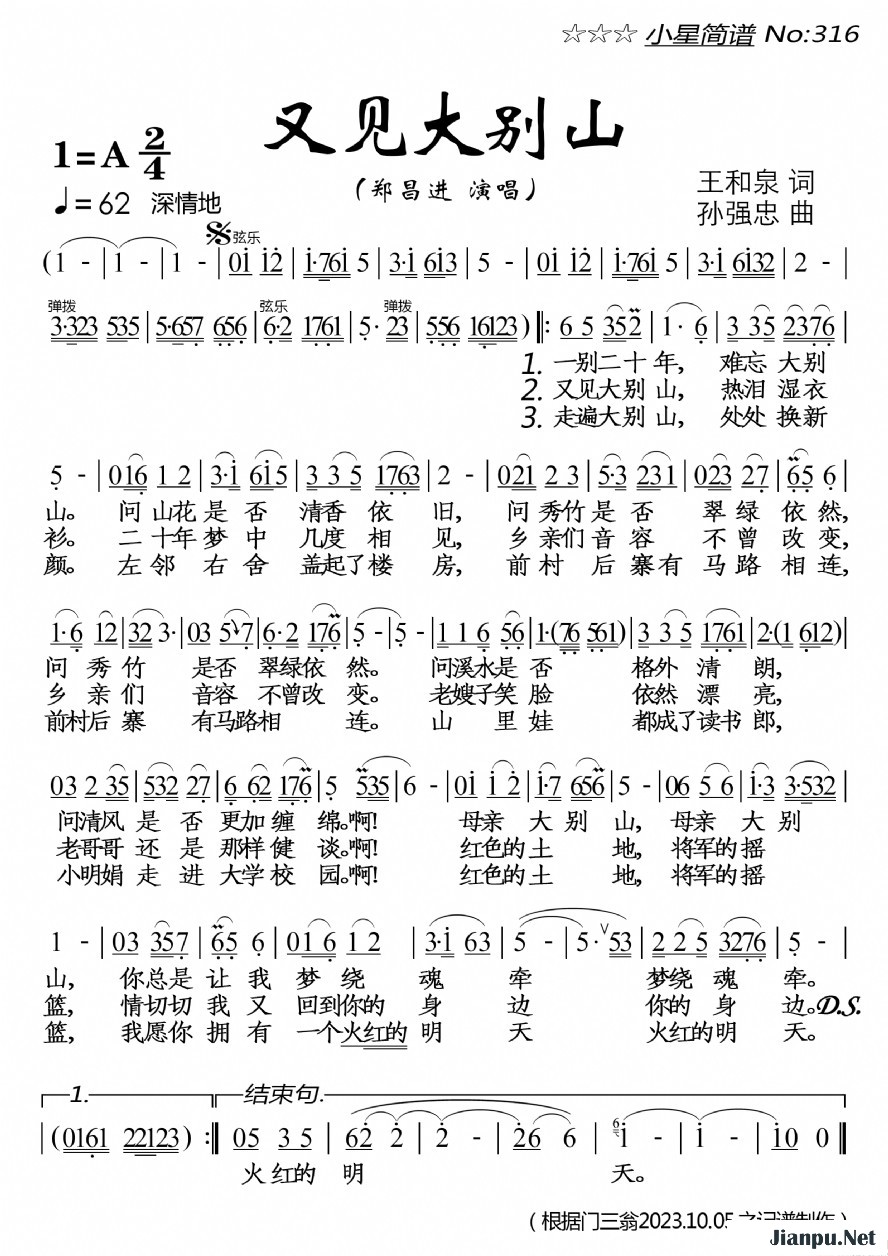 ☆☆☆ 小星简谱 No:316
又见大别山
1=A 2/4
（郑昌进 演唱）
王和泉 词
♩=62 深情地
孙强忠 曲
弦乐
(1 - | 1 - | 1 - | 0i i2 | i·76i 5 | 3·i 6i3 | 5 - | 0i i2 | i·76i 5 | 3·i 6i32 | 2 - |
弹拨 弦乐 弹拨
3·323 535 | 5·657 656 | 6·2 1761 | 5· 23 | 556 16123) ‖: 6 5 352 | 1· 6 | 3 35 2376 |
1. 一别二十年， 难忘大别
2. 又见大别山， 热泪湿衣
3. 走遍大别山， 处处换新
5 - | 016 1 2 | 3·i 6i5 | 3 3 5 1763 | 2 - | 021 2 3 | 5·3 231 | 023 27 | 65 6 |
山。 问山花是否 清香依旧， 问秀竹是否 翠绿依然，
衫。 二十年梦中 几度相见， 乡亲们音容 不曾改变，
颜。 左邻右舍 盖起了楼房， 前村后寨有马路相连，
1·6 12 | 32 3· | 03 57 | 6·2 176 | 5 - | 5 - | 1 1 6 56 | 1·(76 561) | 3 3 5 1761 | 2·(1 612) |
问秀竹 是否翠绿依然。 问溪水是否 格外清朗，
乡亲们 音容不曾改变。 老嫂子笑脸 依然漂亮，
前村后寨 有马路相连。 山里娃 都成了读书郎，
03 2 35 | 532 27 | 6 62 176 | 5 535 | 6 - | 0i i 2 | i·7 656 | 5 - | 06 5 6 | i·3 3·532 |
问清风是否更加缠绵。啊！ 母亲大别山， 母亲大别
老哥哥还是那样健谈。啊！ 红色的土地， 将军的摇
小明娟走进大学校园。啊！ 红色的土地， 将军的摇
1 - | 03 357 | 65 6 | 016 1 2 | 3·i 63 | 5 - | 5· 53 | 2 2 5 3276 | 5 - |
山， 你总是让我梦绕魂牵 梦绕魂牵。
篮， 情切切我又回到你的身边 你的身边。D.S.
篮， 我愿你拥有一个火红的明天 火红的明天。
1. 结束句.
| (0161 22123) :‖ 05 3 5 | 62 2 | 2 - | 26 6 | 6 i - | i - | i0 0 ‖
火红的明 天。
（根据门三翁2023.10.05之记谱制作）
Jianpu.Net